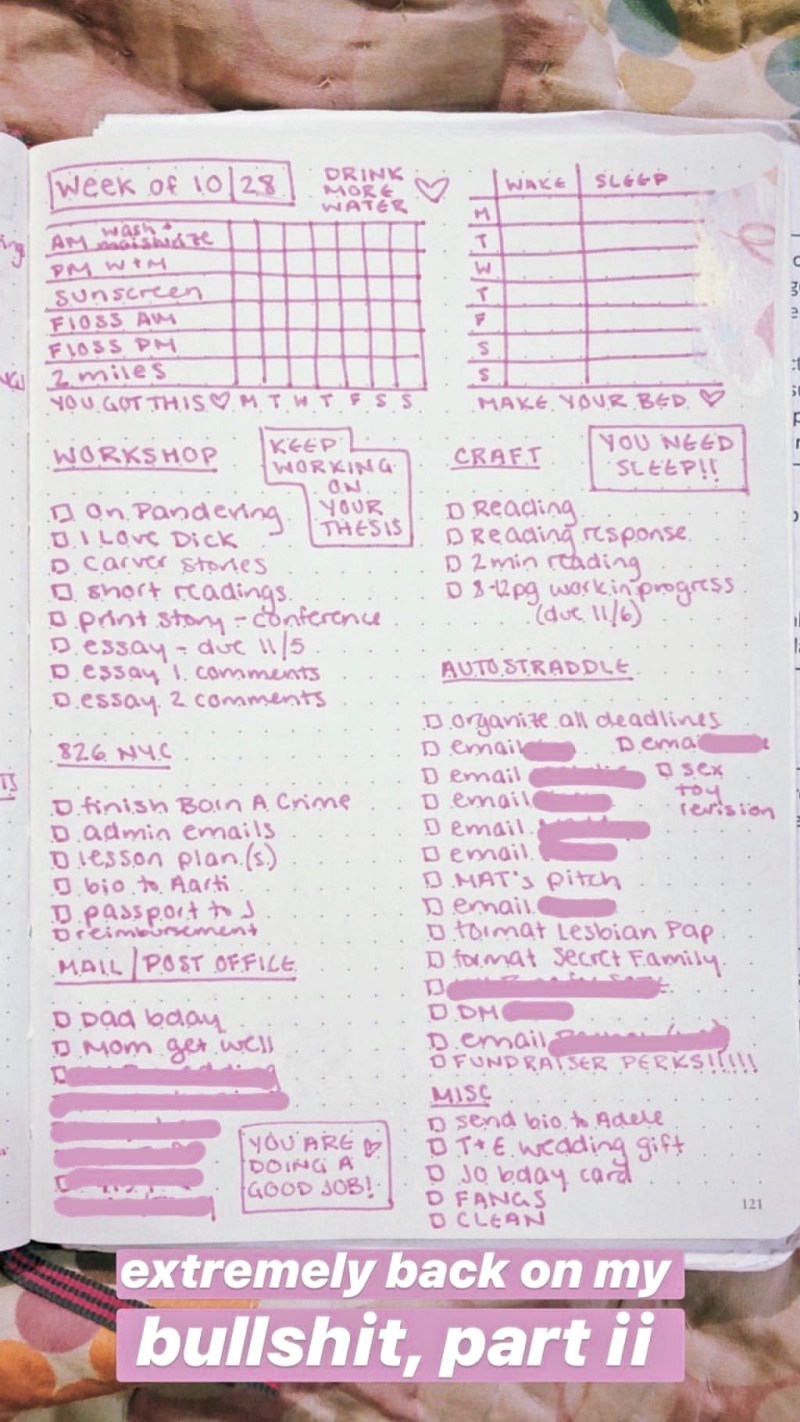 Week of 10|28
DRINK
MORE
WATER
AM wash +
moisturize
PM W+M
sunscreen
FLOSS AM
FLOSS PM
2 miles
YOU GOT THIS ♡ M T W T F S S
WAKE SLEEP
M
T
W
T
F
S
S
MAKE YOUR BED ♡
WORKSHOP
KEEP
WORKING
ON
YOUR
THESIS
On Pandering
I Love Dick
Carver stories
short readings
print story - conference
essay - due 11/5
essay 1 comments
essay 2 comments
826 NYC
finish Born A Crime
admin emails
lesson plan(s)
bio to Aarti
passport to J
reimbursement
MAIL/POST OFFICE
Dad bday
Mom get well
YOU ARE
DOING A
GOOD JOB!
CRAFT
YOU NEED
SLEEP!!
Reading
Reading response
2 min reading
8-12pg work in progress
(due 11/6)
AUTOSTRADDLE
organize all deadlines
email
email
sex
toy
revision
email
email
email
MAT's pitch
email
format Lesbian Pap
format Secret Family
DM
email
FUNDRAISER PERKS!!!!!
MISC
send bio to Adele
T+E wedding gift
Jo bday card
FANGS
CLEAN
121
extremely back on my
bullshit, part ii